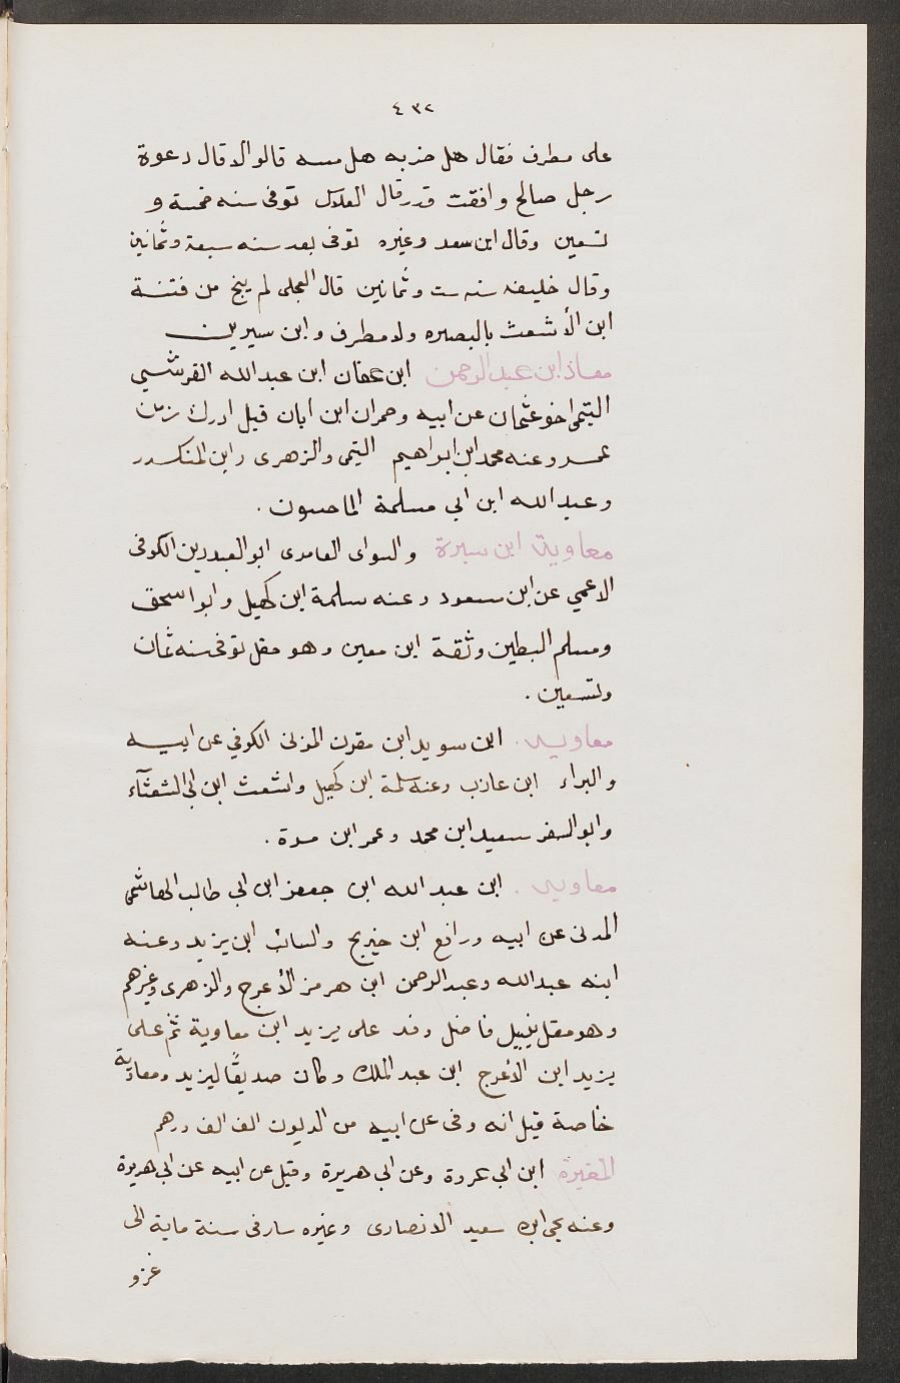 ٤٣٢
على مطرف فقال هل ضربه هل مسه قالوا لا قال دعوة
رجل صالح وافقت قدر قال الفلاس توفى سنه خمسة و
تسعين وقال ابن سعد وغيره توفى بعد سنه سبعة وثمانين
وقال خليفه سنه ست وثمانين قال العجلى لم ينج من فتنة
ابن الأشعث بالبصره ولا مطرف وابن سيرين
معاذ ابن عبد الرحمن ابن عفان ابن عبد الله القرشي
التيمى اخو عثمان عن ابيه وحمران ابن ابان قيل ادرك زمن
عمر وعنه محمد ابن ابراهيم التيمى والزهرى وابن المنكدر
وعبد الله ابن ابي مسلمة الماحسون .
معاوية ابن سبرة والسواى العامرى ابو العبدرين الكوفى
الاعمي عن ابن مسعود وعنه سلمة ابن كهيل وابو اسحق
ومسلم البطين وثقة ابن معين وهو مقل توفى سنه ثمان
وتسعين .
معاويه . ابن سويد ابن مقرن المزنى الكوفي عن ابيه
والبراء ابن عازب وعنه سلمة ابن كهيل واشعث ابن ابى الشعثآء
وابو السفر سعيد ابن محمد وعمر ابن مرة .
معاويه . ابن عبد الله ابن جعفر ابن ابي طالب الهاشمى
المدنى عن ابيه ورافع ابن خديج والسائب ابن يزيد وعنه
ابنه عبد الله وعبد الرحمن ابن هرمز الأعرج والزهرى وغيرهم
وهو مقل نبيل فاضل وفد على يزيد ابن معاوية ثم على
يزيد ابن الأعرج ابن عبد الملك وكان صديقًا ليزيد ومعاوية
خاصة قيل انه وفى عن ابيه من الديون الف الف درهم
المغيرة ابن ابي بردة وعن ابي هريرة وقيل عن ابيه عن ابي هريرة
وعنه يحى ابن سعيد الانصارى وغيره سار فى سنة ماية الى
غزو